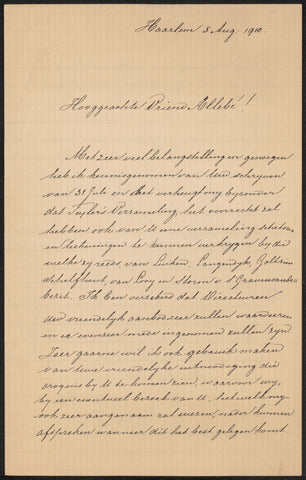 Haarlem 5 Aug. 1910.
Hooggeachte Vriend Allebé!!
Met zeer veel belangstelling en genoegen
heb ik kennisgenomen van uw schryven
van 31 Juli en het verheugt my byzonder
dat Teyler's Verzameling het voorrecht zal
hebben ook van U eene verzameling schetsen
en teekeningen te kunnen verkrygen by die
welke zy reeds, van Lieken, Langendyk,
Schelfhout, van Looy en Storm v. 's Gravensande
bezit. Ik ben verzekerd dat Directeuren
uw vriendelyk aanbod zeer zullen waardeeren
en er weinig mede ingenomen zullen zyn
Zeer gaarne wil ik ook gebruik maken
van uwe vriendelyke uitnoodiging die
croquis by U te komen zien, waarvoor wy,
by een eventueel bezoek van U, het welk my
ook zeer aangenaam zal wezen, nader kunnen
afspreken wanneer dit het best gelegen komt.